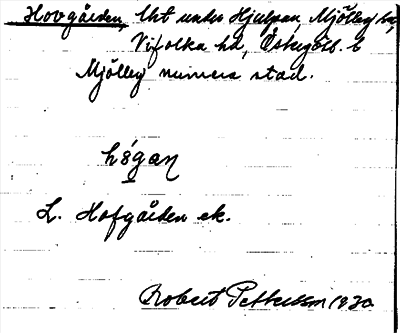 Hovgården, lht under Hjulpan, Mjölby sn,
Vifolka hd, Östergötl. l
Mjölby numera stad.
hógan
L. Hofgården ek.
Robert Pettersson 1930